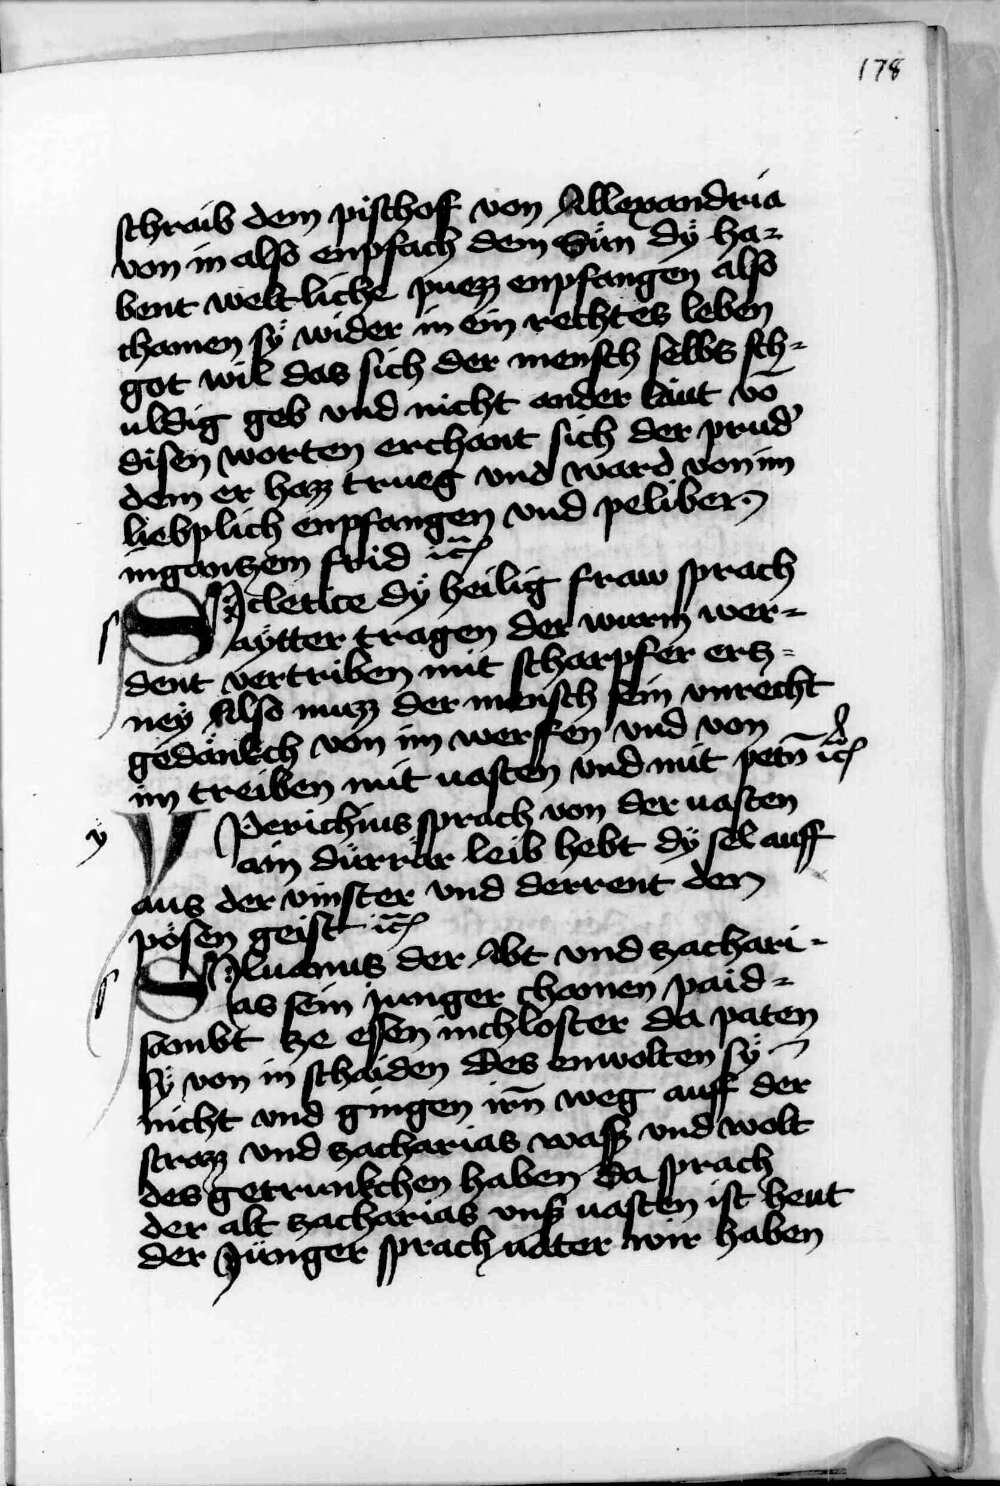 178
schraib dem pischoff von Allexandria
von in also enpfach dem Sün dÿ ha-
bent weltliche puezz enpfangen also
chamen sÿ wider in ein rechtes leben
got wil das sich der mensch selbs sch-
uldig geb vnd nicht ander läut vō
disen worten erchant sich der prud'
dem er hazz trueg vnd ward von im
lieplich enpfangen vnd peliben
in ganczem frid ꝛc̄
SIncletice dÿ heilig fraw sprach
aÿtter tragen der wurm wer-
dent vertriben mit scharpfer ercz-
neÿ Also muzz der mensch sein vnrecht
gedänkch von im werffen vnd von
im treiben mit vasten vnd mit petn̄ ꝛc̄
YPerichius sprach von der vasten
ain dürrär leib hebt dÿ sel auff
aus der vinster vnd derrent den
pösen geist ꝛc̄
SIluanus der Abt vnd zachari-
as sein junger chamen paid-
sambt ze essen in chloster da paten
sÿ von in schaiden des enwolten sÿ
nicht vnd gingen irn̄ weg auff der
strazz vnd zacharias wass vnd wolt
des getrunkchen haben da sprach
der alt zacharias vnß vasten ist heut
der Jünger sprach vater wir haben